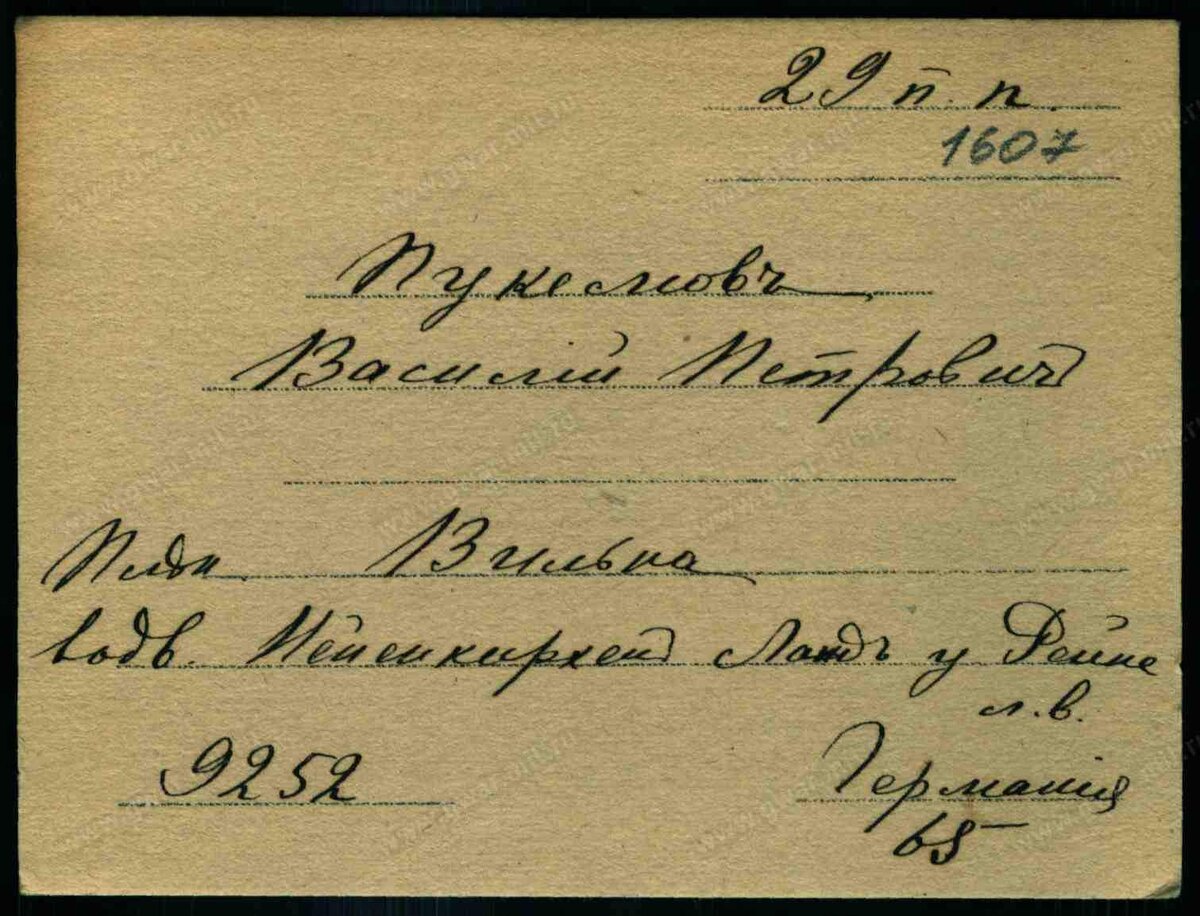 29 п. п.
1607
Пукемовъ
Василій Петровичъ
Вильна
водв. Нейенкирхенъ у Рейне
л. в.
9252
Германія
65